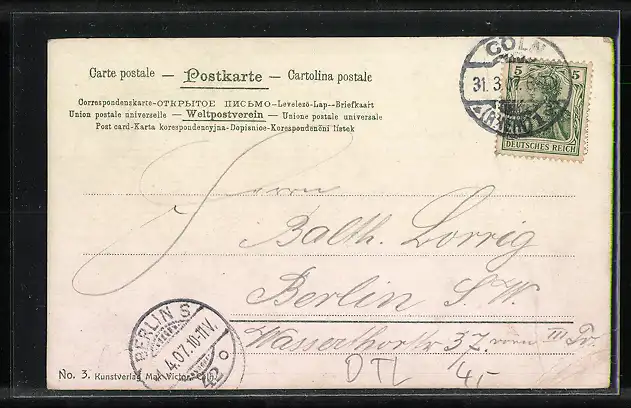 Carte postale — Postkarte — Cartolina postale
Correspondenskarte-ОТКРЫТОЕ ПИСЬМО-Levelező-Lap--Briefkaart
Union postale universelle — Weltpostverein — Unione postale universale
Post card-Karta korespondencyjna-Dopisnice-Korespondenční lístek
CÖLN
31.3.07.
(RHEIN) 1
5 5
DEUTSCHES REICH
Herrn
Balth. Lorrig
Berlin S. W.
Wasserthorstr 37. vorn III Tr.
BERLIN S.
1.4.07.10-11V.
DTL
1/45
No. 3. Kunstverlag Max Victor, Cöln.